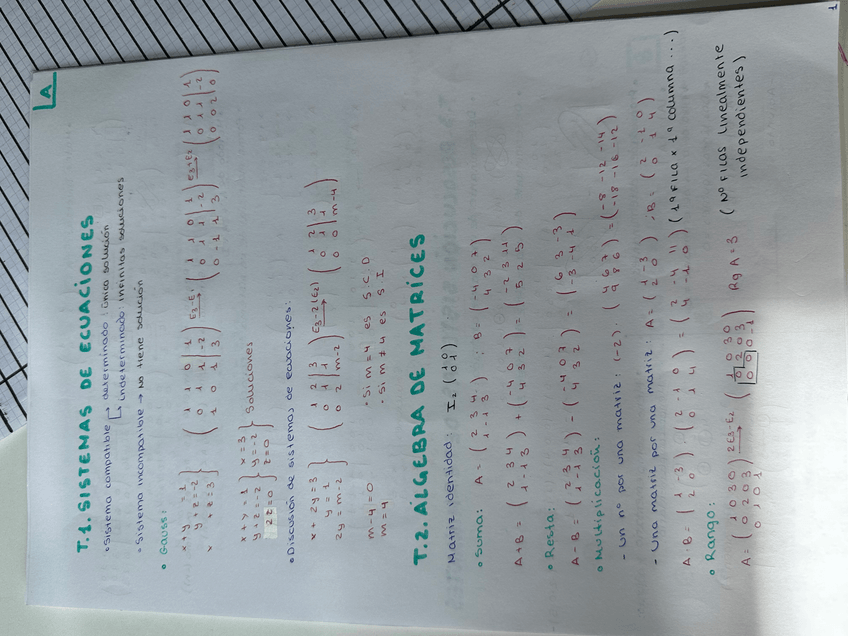 A
T.1. SISTEMAS DE ECUACIONES
• Sistema compatible determinado: única solución
↳ indeterminado: infinitas soluciones
• Sistema incompatible → No tiene solución
• Gauss:
x+y = 1
y+z = -2
x +z = 3
( 1 1 0 | 1 )
( 0 1 1 | -2 )
( 1 0 1 | 3 )
E3-E1 →
( 1 1 0 | 1 )
( 0 1 1 | -2 )
( 0 -1 1 3 )
E3+E2 →
( 1 1 0 | 1 )
( 0 1 1 | -2 )
( 0 0 2 | 0 )
x+y = 1 } x=3
y+z=-2 } y=-2 } Soluciones
2z=0 } z=0
• Discusión de sistemas de ecuaciones:
x + 2y = 3
y = 1
2y = m-2
( 1 2 | 3 )
( 0 1 | 1 )
( 0 2 | m-2 )
E3-2(E2) →
( 1 2 3 )
( 0 1 | 1 )
( 0 0 m-4 )
m-4=0 • Si m=4 es S.C.D
m=4 • Si m≠4 es S I
T.2. ÁLGEBRA DE MATRICES
Matriz identidad: I2 ( 1 0 )
( 0 1 )
• Suma: A = ( 2 3 4 ) ; B = ( -4 0 7 )
( 1 -1 3 ) ( 4 3 2 )
A+B = ( 2 3 4 ) + ( -4 0 7 ) = ( -2 3 11 )
( 1 -1 3 ) ( 4 3 2 ) ( 5 2 5 )
• Resta:
A-B = ( 2 3 4 ) - ( -4 0 7 ) = ( 6 3 -3 )
( 1 -1 3 ) ( 4 3 2 ) ( -3 -4 1 )
• Multiplicación:
- Un nº por una matriz: (-2) · ( 4 6 7 ) = ( -8 -12 -14 )
( 9 8 6 ) ( -18 -16 -12 )
- Una matriz por una matriz: A = ( 1 -3 ) ; B = ( 2 -1 0 )
( 2 0 ) ( 0 1 4 )
A·B = ( 1 -3 ) · ( 2 -1 0 ) = ( 2 -4 11 ) (1ª Fila x 1ª columna ...)
( 2 0 ) ( 0 1 4 ) ( 4 -1 0 )
• Rango:
A = ( 1 0 3 0 ) 2E3-E2 → ( 1 0 3 0 ) Rg A = 3 (Nº Filas linealmente
( 0 2 0 3 ) ( 0 2 0 3 ) independientes)
( 0 1 0 1 ) ( 0 0 0 -1 )
1